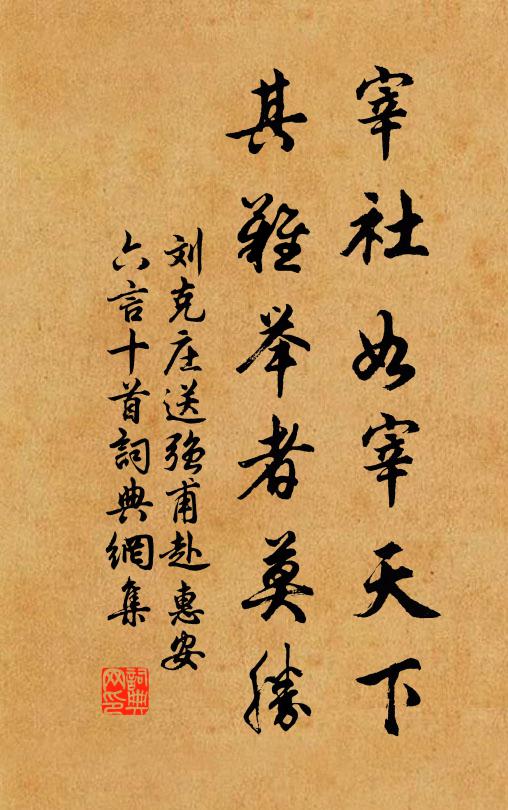 宰社如宰天下
其難举者莫勝
刘克庄送强甫赴惠安
六言十首詞典網集
詞典网印